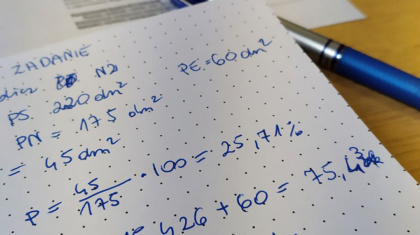 ZADANIE
N2
PS. 220 dm² PE=60dm²
PN = 175 dm²
= 45 dm²
P = 45/175 · 100 = 25,71%
426 + 60 =